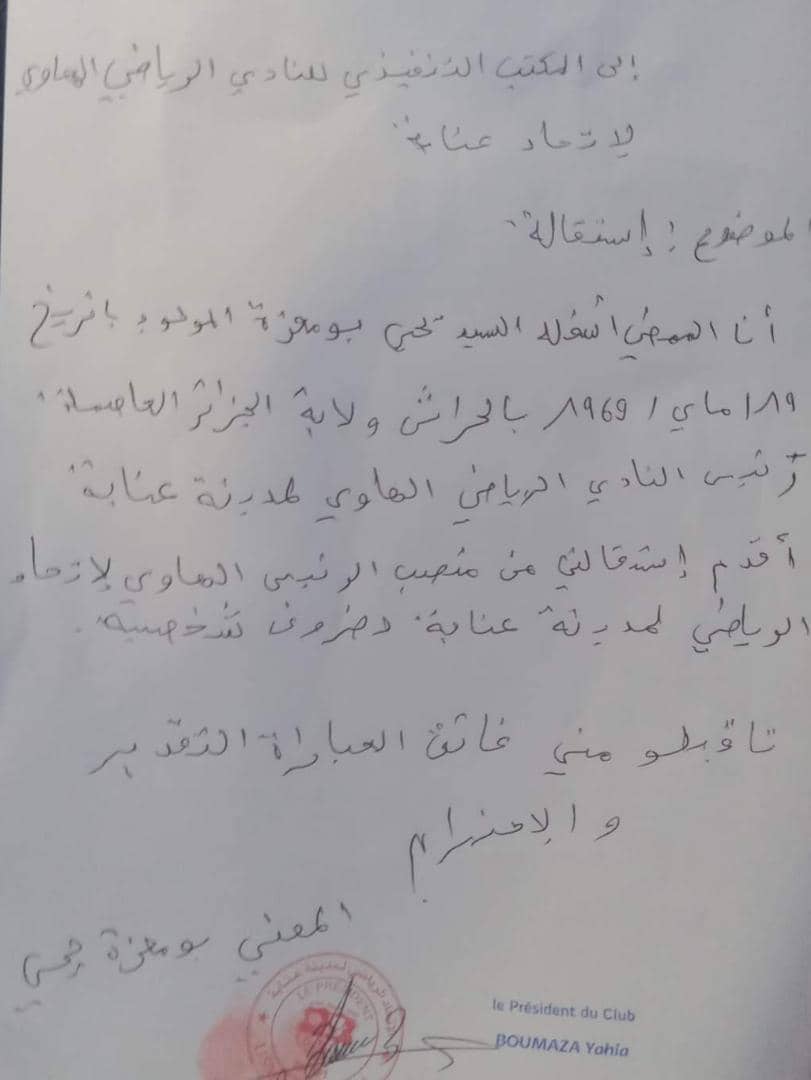 إلى المكتب التنفيذي للنادي الرياضي الهاوي
لإتحاد عنابة
الموضوع : إستقالة
أنا الممضي أسفله السيد يحي بومعزة المولود بتاريخ
19/ماي/1969 بالحراش ولاية الجزائر العاصمة
رئيس النادي الرياضي الهاوي لمدينة عنابة
أقدم إستقالتي من منصب الرئيس الهاوي لإتحاد
الرياضي لمدينة عنابة. دضروف شخصية.
تاقبلو مني فائق العباراة التقدير
و الإحترام
المعني بومعزة يحي
LE PRESIDENT
le Président du Club
BOUMAZA Yahia